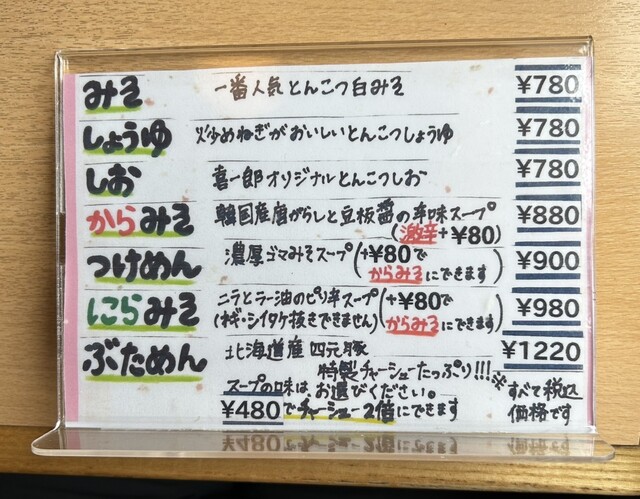 みそ 一番人気とんこつ白みそ ¥780
しょうゆ 炒めねぎがおいしいとんこつしょうゆ ¥780
しお 喜一郎オリジナルとんこつしお ¥780
からみそ 韓国産唐がらしと豆板醤の辛味スープ ¥880
(激辛+¥80)
つけめん 濃厚ゴマみそスープ(+¥80で ¥900
からみそにできます)
にらみそ ニラとラー油のピリ辛スープ(+¥80で ¥980
(ネギ・シイタケ抜きできません) からみそにできます)
ぶためん 北海道産四元豚 ¥1220
特製チャーシューたっぷり!!!
スープの味はお選びください。 ※すべて税込
¥480でチャーシュー2倍にできます 価格です